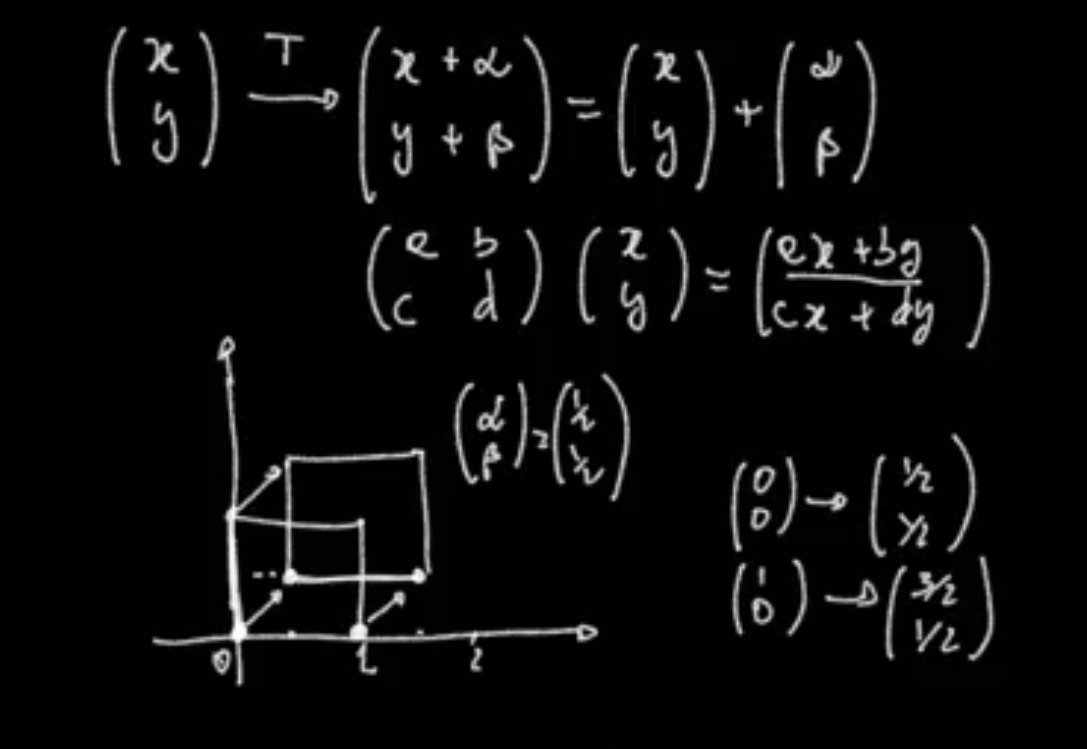 (x y) T→ (x + α y + β) = (x y) + (α β)
(e b c d) (x y) = (ex + by cx + dy)
(α β) = (1/2 1/2)
(0 0) → (1/2 1/2)
(1 0) → (3/2 1/2)
0 1 2